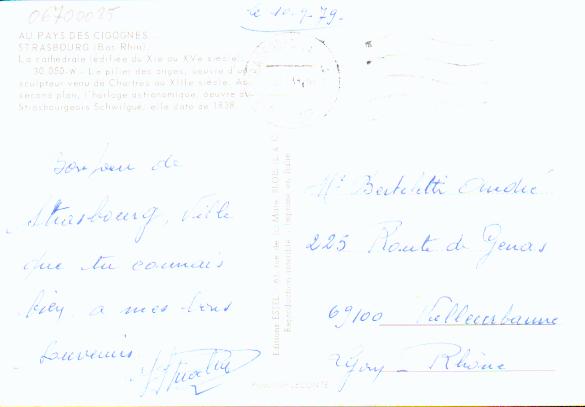 06700025
le 10.9.79.
AU PAYS DES CIGOGNES
STRASBOURG (Bas Rhin)
La cathédrale (édifiée du XIe au XVe siècle)
30.050-W - Le pilier des anges, oeuvre d'un
sculpteur venu de Chartres au XIIIe siècle. Au
second plan, l'horloge astronomique, oeuvre du
Strasbourgeois Schwilgué, elle date de 1838.
de
Strasbourg, Ville
que tu connais
bien, a mes bons
Souvenirs
Editions ESTEL, 61 rue de la
Reproduction interdite Imprimé en Italie
LECONTE
Mr Berteletti André
225 Route de Genas
69100 Villeurbanne
Lyon - Rhône